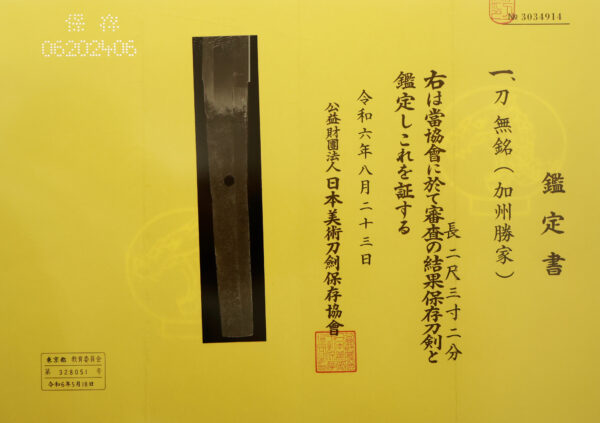 № 3034914
鑑定書
一、刀 無銘（加州勝家）
長 二尺三寸二分
右は當協會に於て審査の結果保存刀剣と
鑑定しこれを証する
令和六年八月二十三日
公益財團法人 日本美術刀劍保存協會
保存
06202406
東京都 教育委員会
第 328051 号
令和6年5月18日